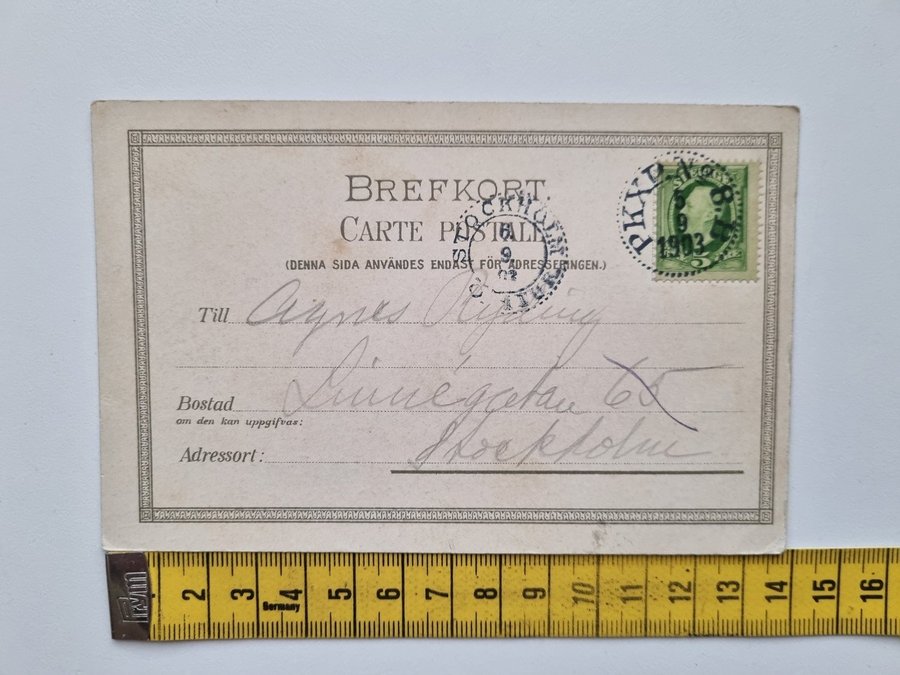 BREFKORT.
CARTE POSTALE
(DENNA SIDA ANVÄNDES ENDAST FÖR ADRESSERINGEN.)
PKXP. 
5
9
1903
STOCKHOLM
9
Till Agnes
Bostad Linnégatan 65
om den kan uppgifvas:
Adressort: Stockholm
Germany
2 3 4 5 6 7 8 9 10 11 12 13 14 15 16